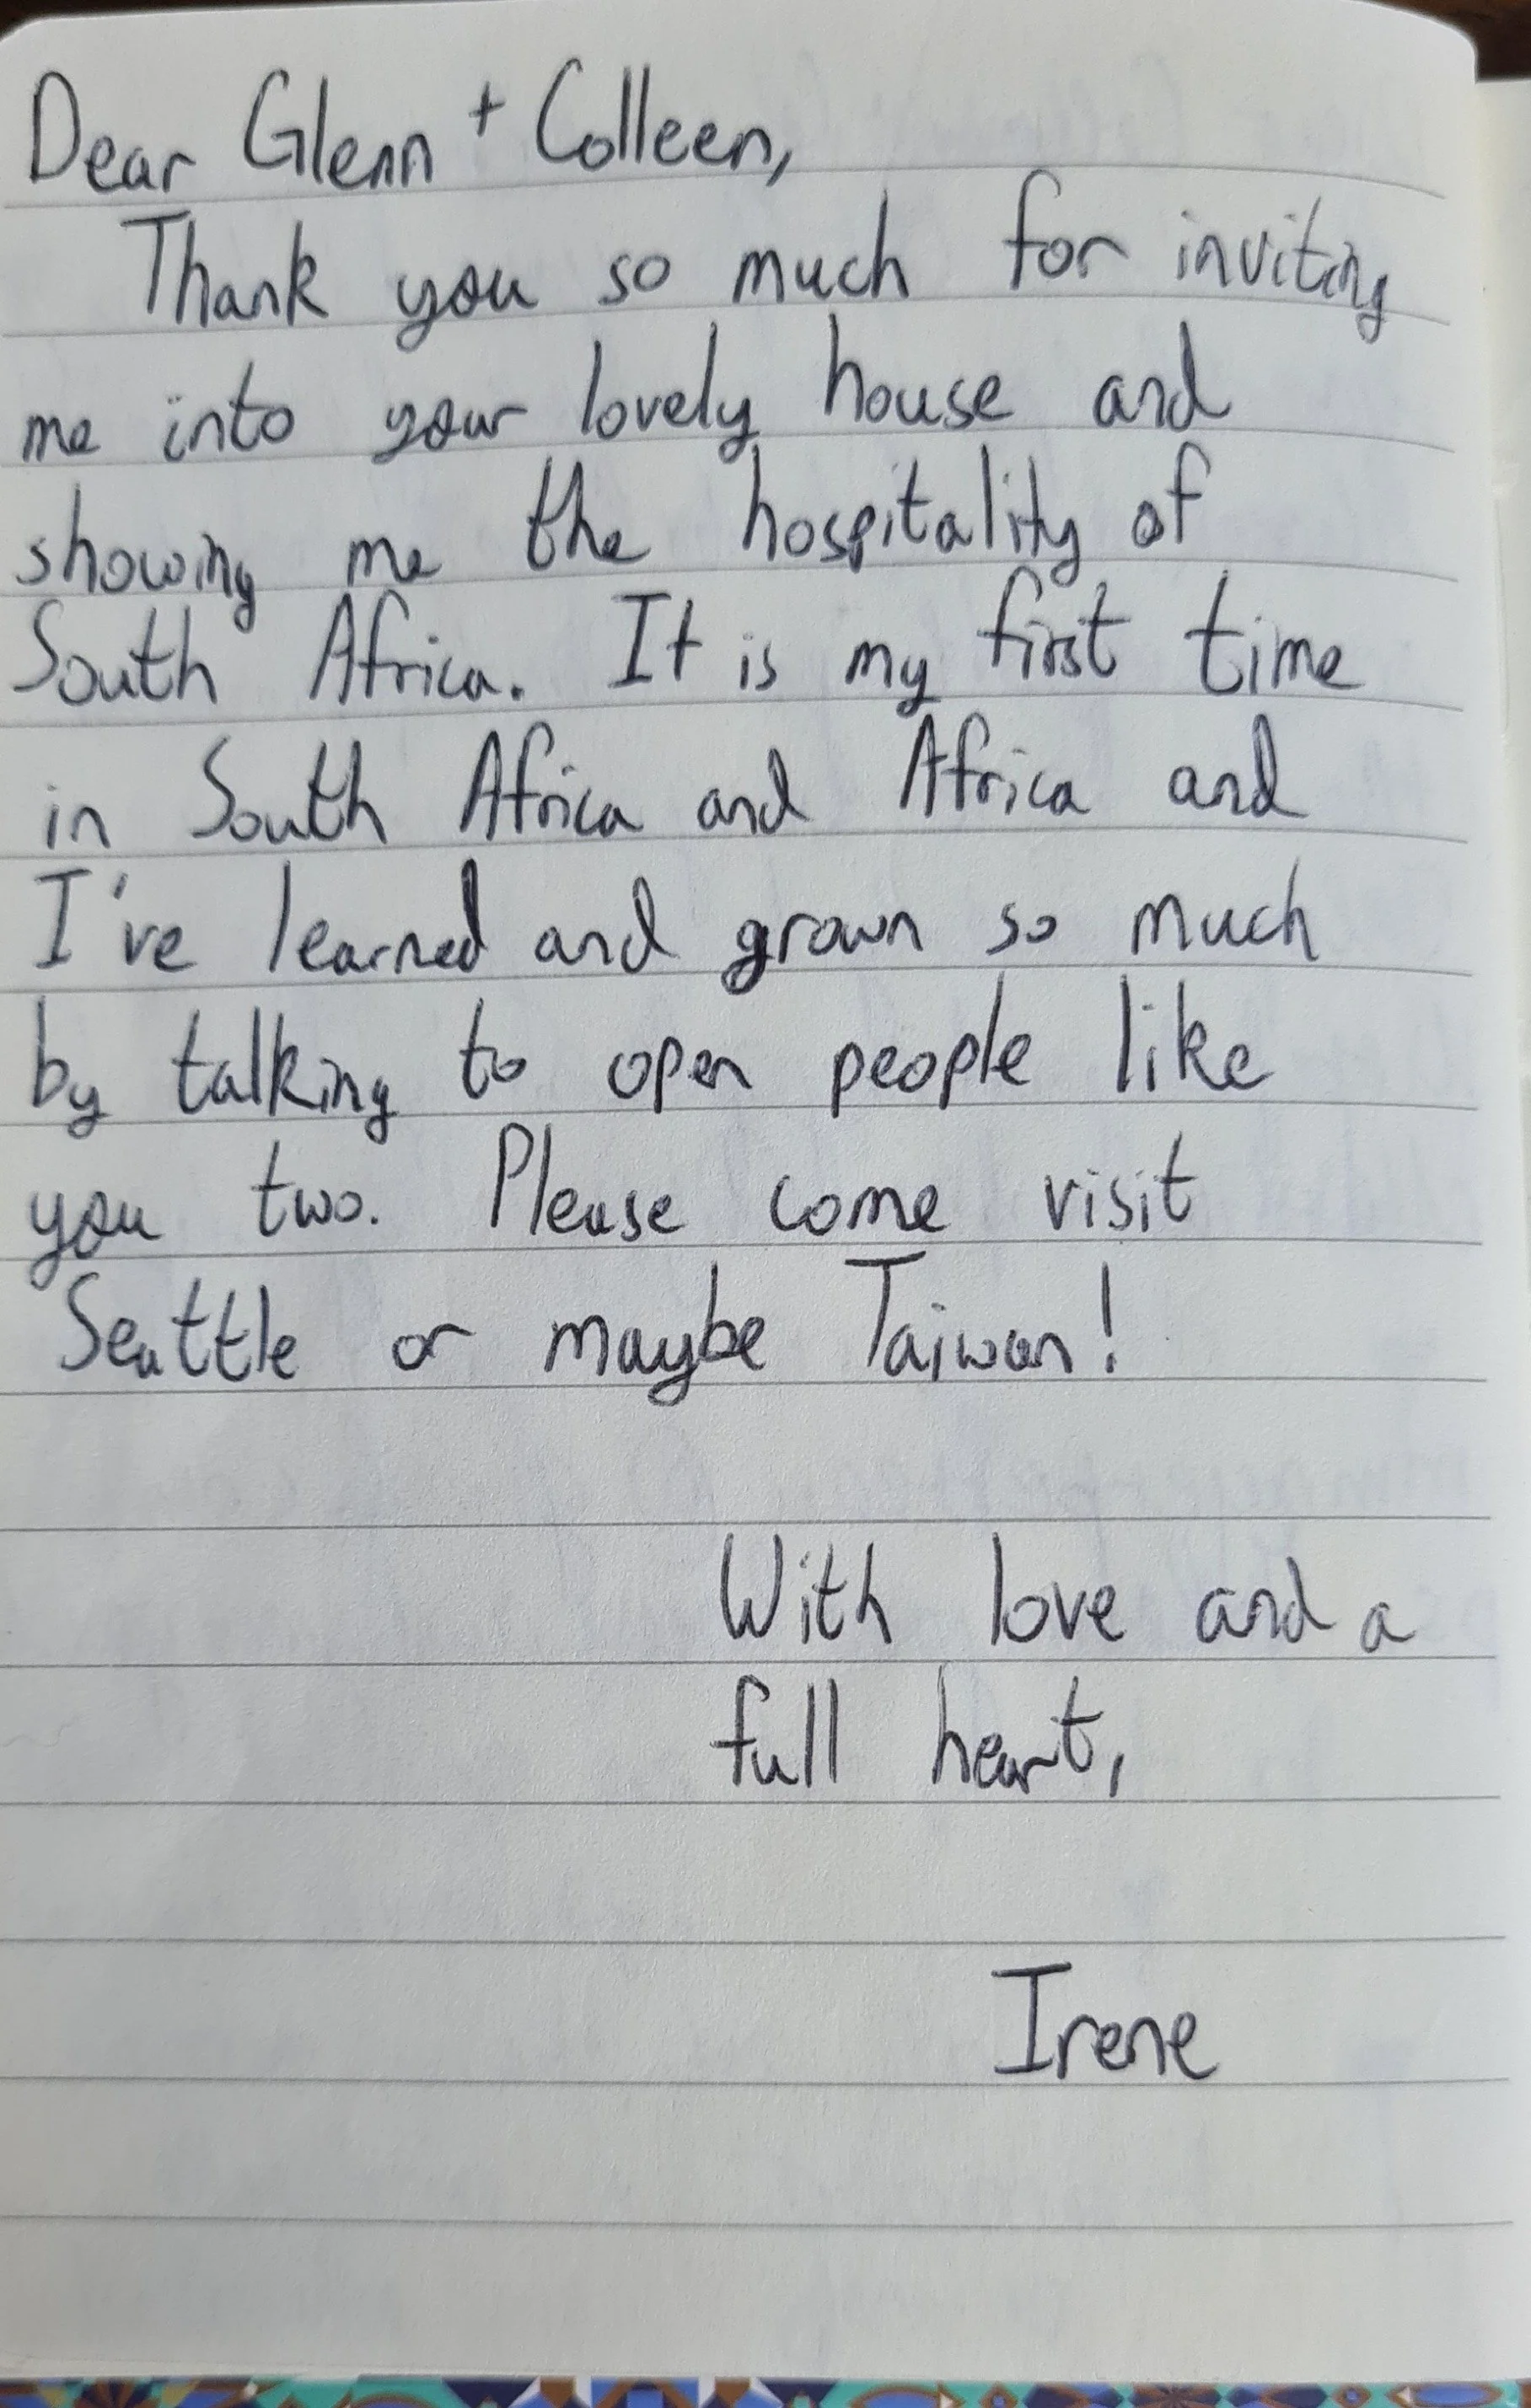 Dear Glenn + Colleen,
Thank you so much for inviting
me into your lovely house and
showing me the hospitality of
South Africa. It is my first time
in South Africa and Africa and
I've learned and grown so much
by talking to open people like
you two. Please come visit
Seattle or maybe Taiwan!
With love and a
full heart,
Irene